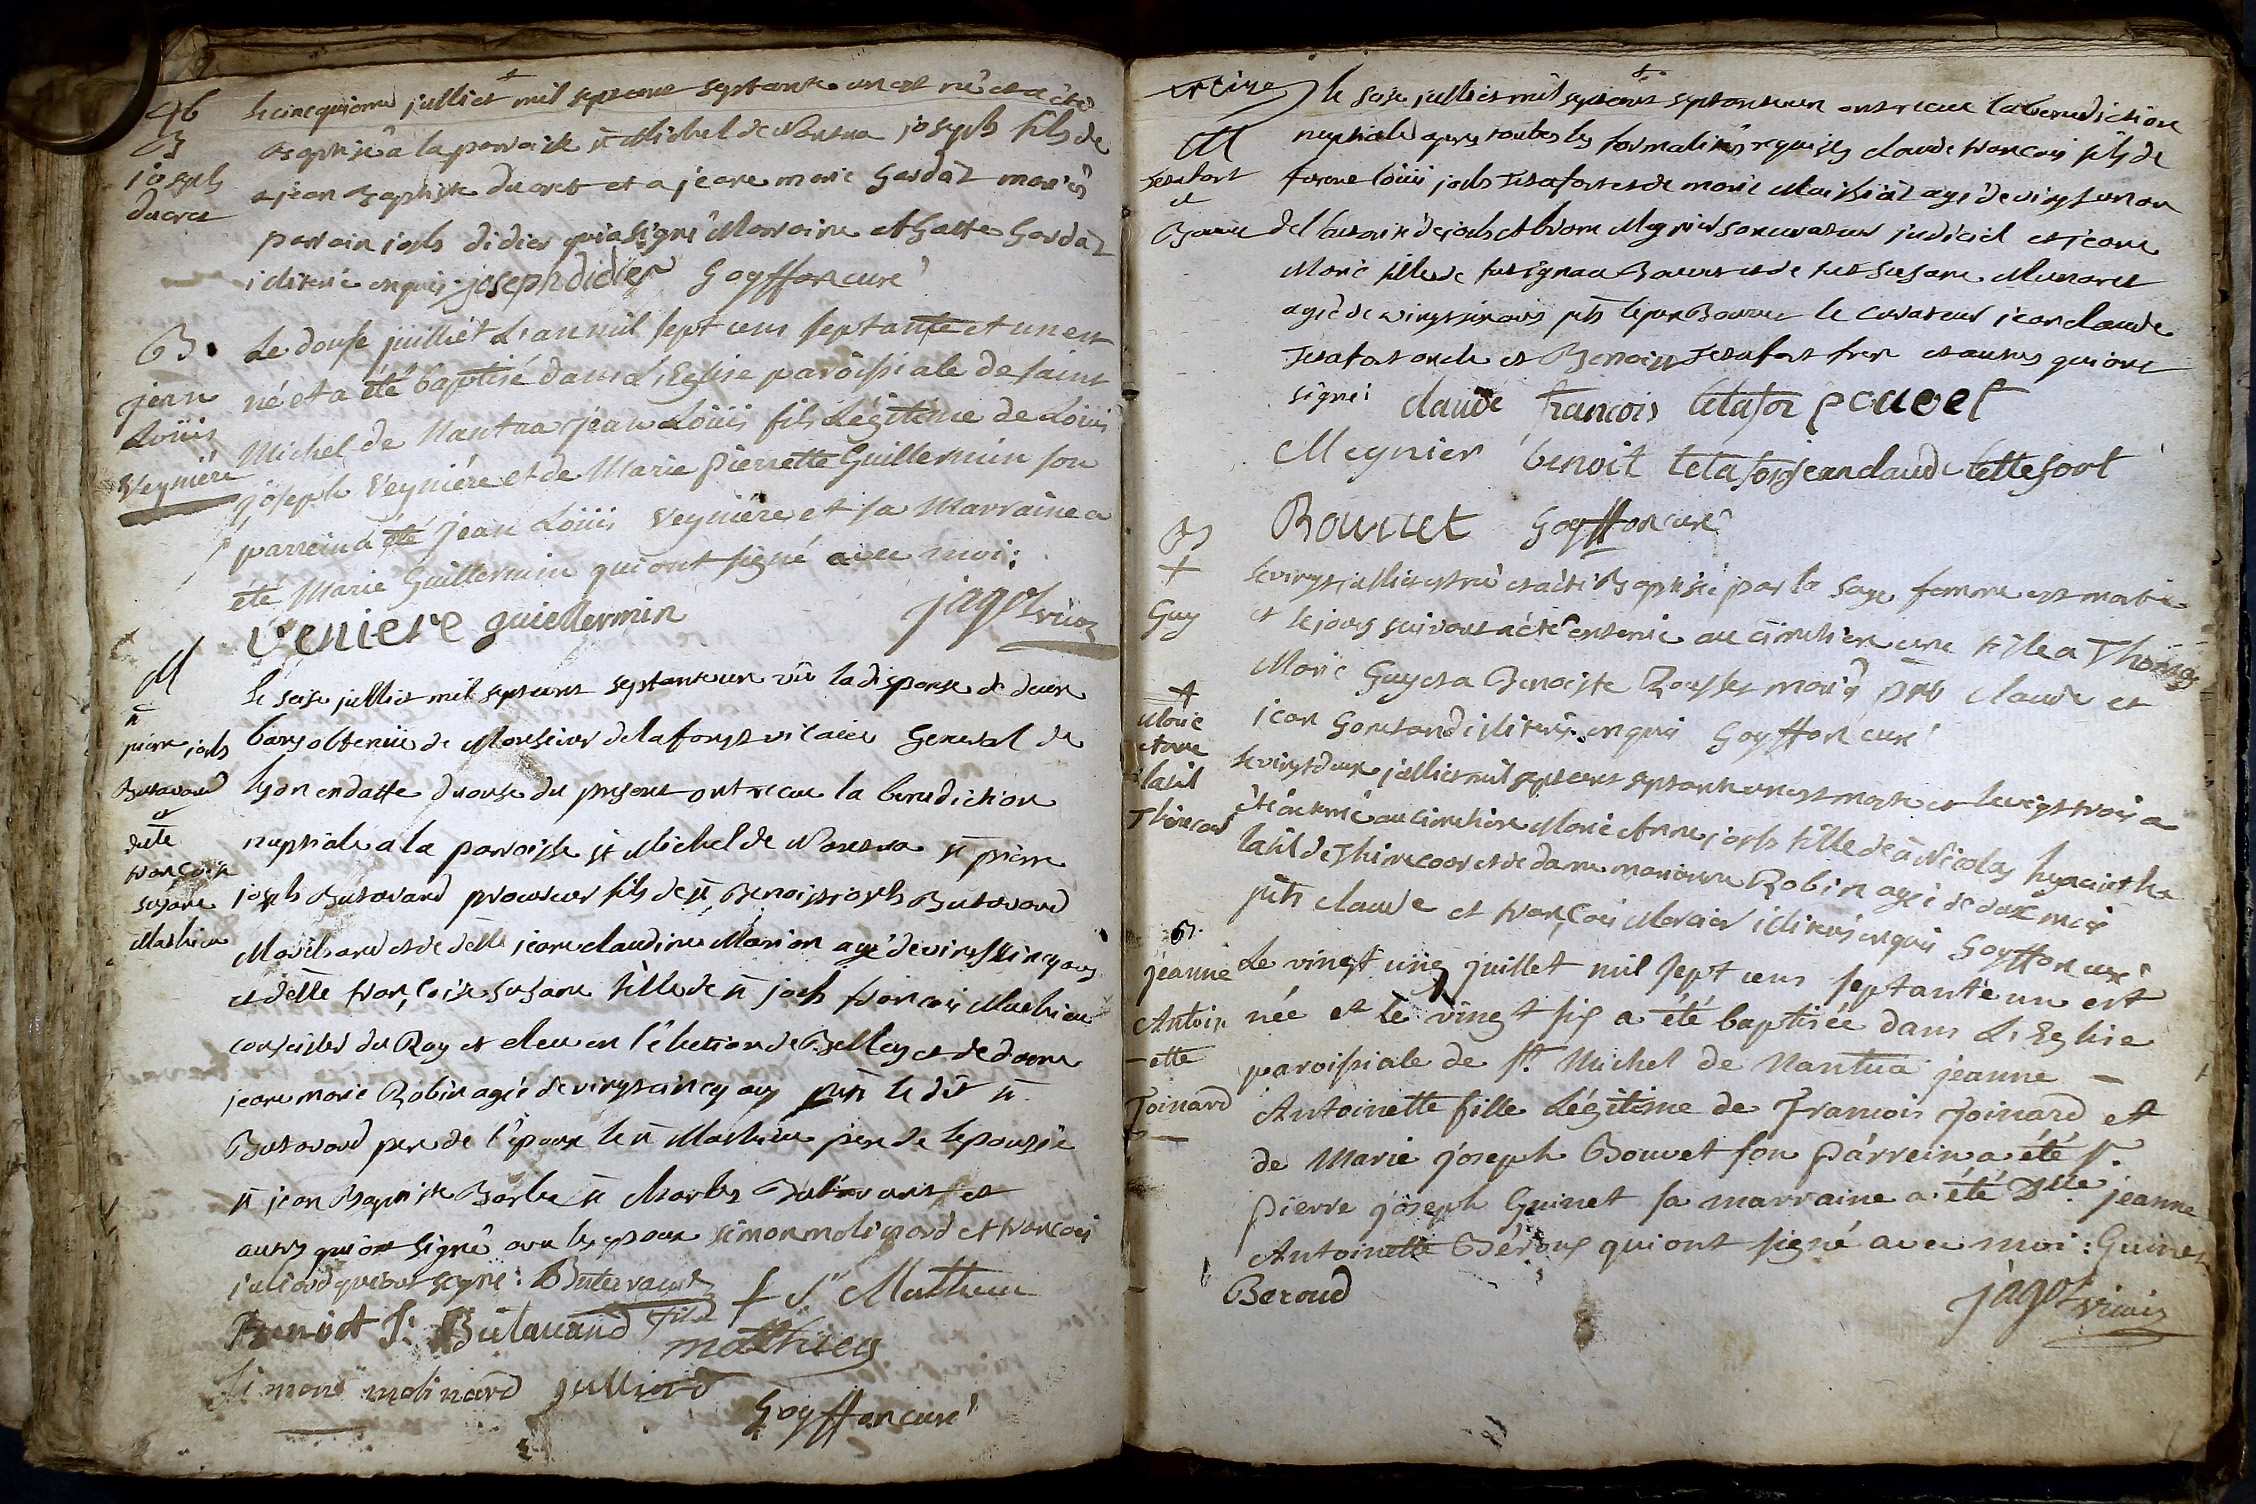 46
B
joseph
ducret
le cinquieme julliet mil sept cent septante un est né et a été
Baptisé a la paroisse st Michel de Nantua joseph fils de
a jean Baptiste ducret et a jeane marie Gardaz mariés
parrain josh didier qui a signé Marraine Gardaz
iliterée enquis joseph didier Goyffon curé
B.
jean
Loüis
Veyniére
Le douse juilliét L'an mil sept cens septante et un est
né et a été baptisé dans L'Eglise paroissiale de saint
Michel de Nantua jean Loüis fils Légitime de Loüis
joseph Veyniére et de Marie pierrette Guillermin son
parrein a été jean Loüis Veyniére et sa Marraine a
été Marie Guillermin qui ont signé avec moi:
veniere guiellermin jagot vic.
M
sr
pierre josh
Butavand
et
delle
françoise
susane
Mathieu
le seise julliet mil sept cent septante un vû la dispense de deux
bans obtenüe de Monseieur delafont vicaire General de
Lyon en datte du onse du present ont recue la benediction
nuptiale a la paroisse st Michel de Nantua sr pierre
joseph Butavand procureur fils de sr Benoist joseph Butavand
et de delle jeane claudine Marion agé de vingt cinq ans
et delle françoise susane fille de sr josh francois Mathieu
conseiller du Roy et eleu en l'élection de Belley et de dame
jeane marie Robin agée de vingt cinq ans pnts le dit sr
Butavand pere de l'époux le sr Mathieu pere de lepouse
sr jean Baptiste Barbe sr charles Butavant et
autres qui ont signé avec les epoux simon molinard et françois
juliard qui ont signé: Butavant f S Mathieu
Benoit J. Butavand fils mathieu
Simond molinard julliard
Goyffon curé
M
Tetafort
et
Bouvet
le seise julliet mil sept cent septante un ont recue la benediction
nuptiale apres toutes les formalités requises claude francois fils de
Loüis josh Tetafort et de marie agé de vingt un an
de l'autorité de josh Meynier son curateur judiciel et jeane
Marie fille de Bouvet et de susane
agée de vingt ans pnts le pere Bouvet le curateur jean claude
Tetafort oncle et Benoit Tetafort frere et autres qui ont
signé: claude francois tetafor pouvet
Meynier benoit tetafort jean claude tettefort
Bouvet Goyffon curé
B
+
Guy
le vingt julliet est né et a été Baptisé par la sage femme est morte
et le jour suivant a été enterrée au cimetiere une fille a Thomas
Marie Guy et a Benoiste Rousset mariés pnts claude et
jean Gonetand iliterés enquis Goyffon curé
+
Marie
Anne
latil
Thimecour
le vingt deux julliet mil sept cent septante un est morte et le vingt trois a
été enterrée au cimetiere Marie Anne josh fille de a Nicolas hyacinthe
latil de Thimecour et de dame marianne Robin agée de dix mois
pnts claude et françois Mercier iliterés enquis Goyffon curé
B.
jeanne
Antoin
-ette
Joinard
Le vingt cinq juillet mil sept cens septante un est
née et le vingt six a été baptisée dans L'Eglise
paroissiale de st. Michel de Nantua jeanne
Antoinette fille Légitime de Francois Joinard et
de Marie joseph Bouvet son parrein a été sr.
pierre joseph Guinet sa marraine a été Dlle jeanne
Antoinette Béroud qui ont signé avec moi: Guinet
Beroud jagot vicaire